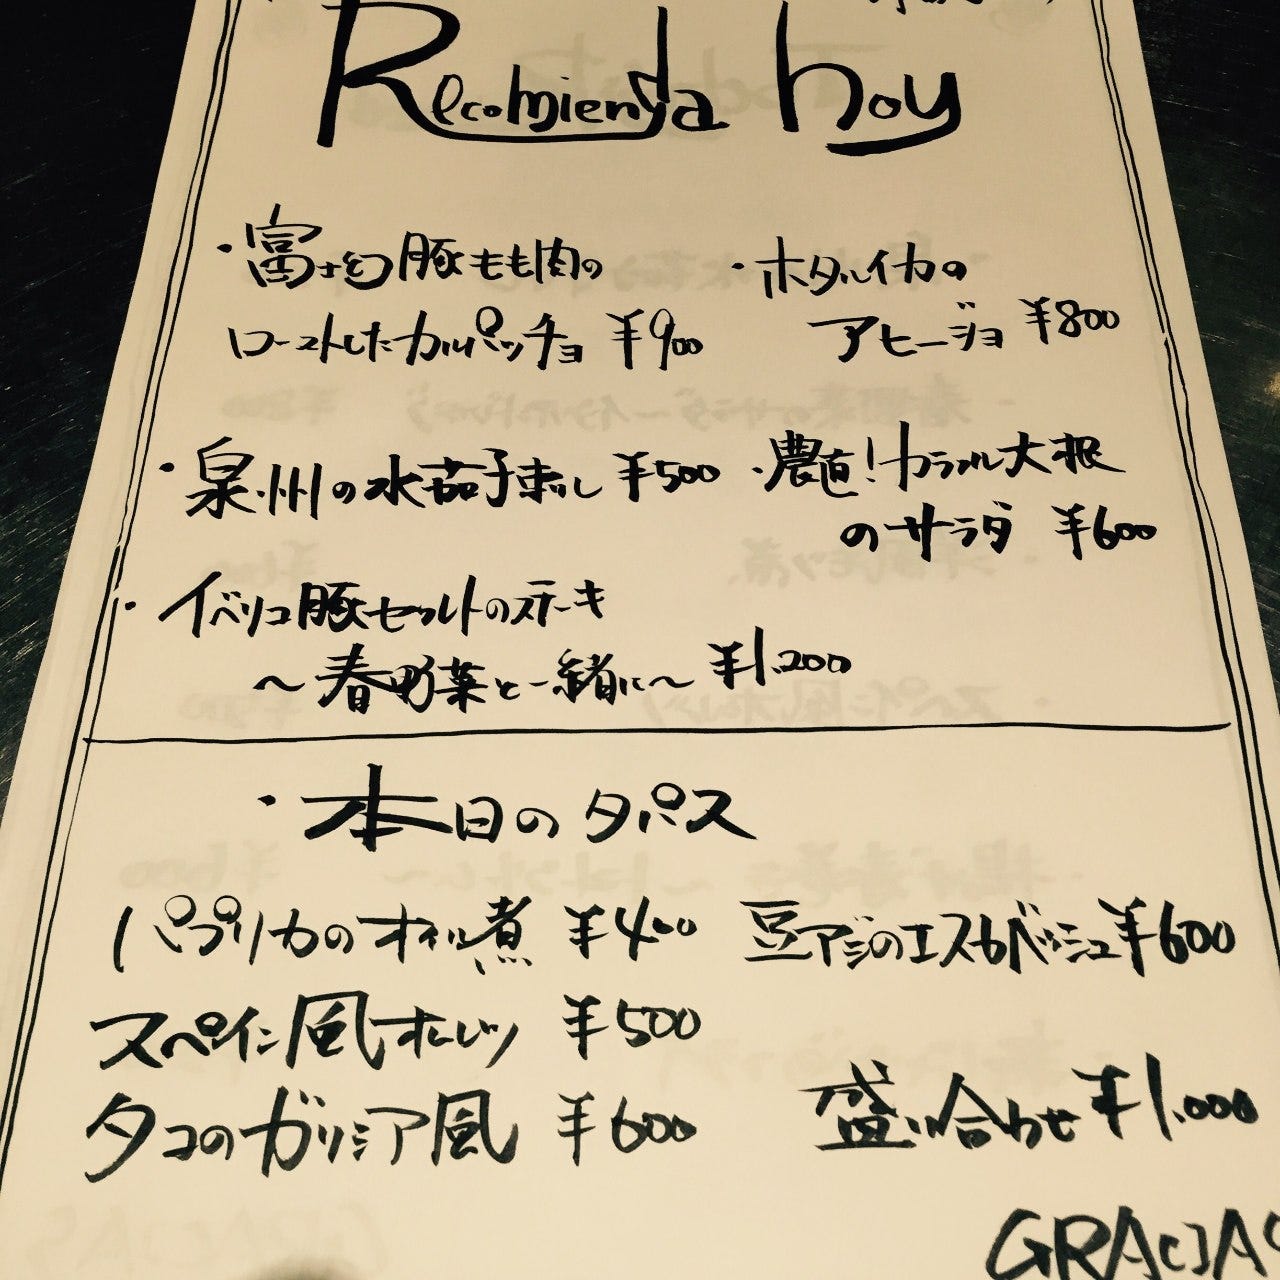 Recomienda hoy
・富士幻豚もも肉の
ローストしたカルパッチョ ¥900
・ホタルイカの
アヒージョ ¥800
・泉州の水茄子刺し ¥500
・農直!カラフル大根
のサラダ ¥600
・イベリコ豚セクレトのステーキ
～春野菜と一緒に～ ¥1,200
・本日のタパス
パプリカのオイル煮 ¥400
スペイン風オムレツ ¥500
タコのガリシア風 ¥600
豆アジのエスカベッシュ ¥600
盛り合わせ ¥1,000
GRACIAS